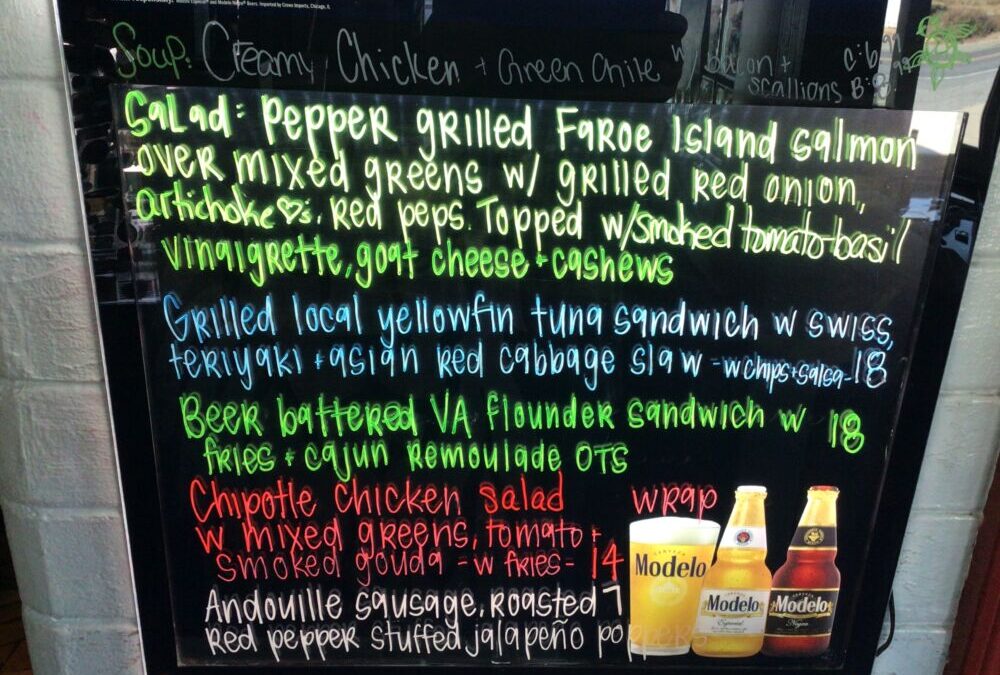 Modelo Especial® and Modelo Negra® Beers. Imported by Crown Imports, Chicago, IL
Soup: Creamy Chicken + Green Chile w/ bacon + scallions
Salad: Pepper grilled Faroe Island salmon
over mixed greens w/ grilled red onion,
artichoke ♡s, Red peps. Topped w/smoked tomato-basil
vinaigrette, goat cheese + cashews
Grilled local yellowfin tuna sandwich w swiss,
teriyaki + asian red cabbage slaw - w chips + salsa - 18
Beer battered VA flounder sandwich w 18
fries + cajun remoulade OTS
Chipotle chicken salad wrap
w mixed greens, tomato +
smoked gouda - w fries - 14
Andouille sausage, roasted 7
Red pepper stuffed jalapeño poppers
Modelo
Modelo
Especial
Modelo
Negra